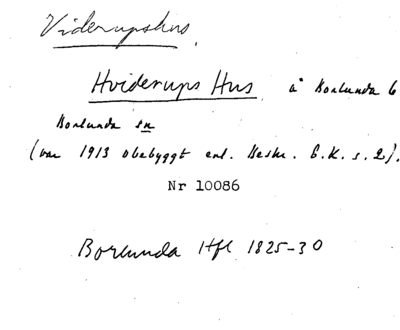 Viderupshus.
Hviderups Hus å Borlunda 6
Borlunda sn
(var 1913 obebyggt enl. Beskr. E.K. s. 2).
Nr 10086
Borlunda Hfl 1825-30